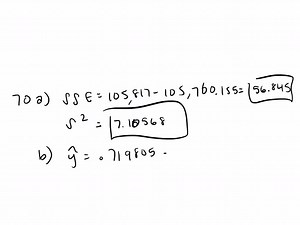 70a) SSE = 105,817 - 105,760.155 = 56.845
s² = 7.10568
b) ŷ = .719805.